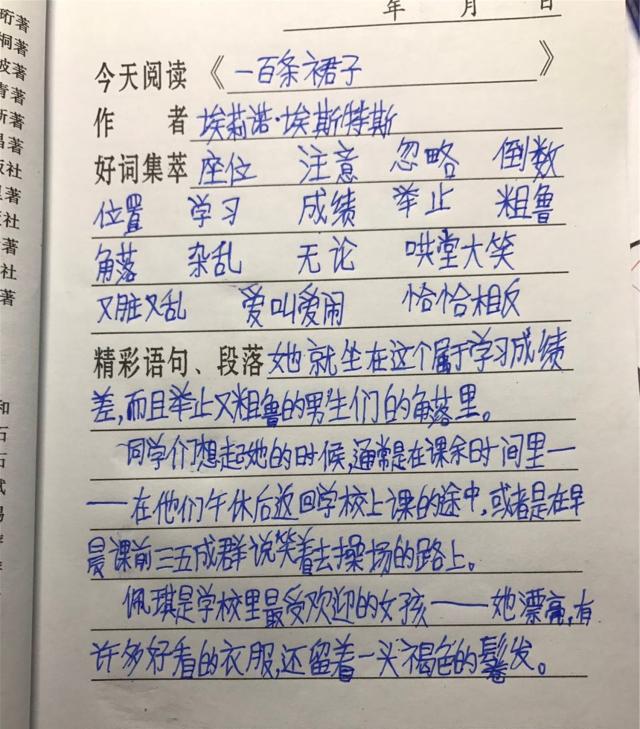 年 月 日
今天阅读《一百条裙子》
作 者 埃莉诺·埃斯特斯
好词集萃 座位 注意 忽略 倒数
位置 学习 成绩 举止 粗鲁
角落 杂乱 无论 哄堂大笑
又脏又乱 爱叫爱闹 恰恰相反
精彩语句、段落 她就坐在这个属于学习成绩
差,而且举止又粗鲁的男生们的角落里。
同学们想起她的时候,通常是在课余时间里—
—在他们午休后返回学校上课的途中,或者是在早
晨课前三五成群说笑着去操场的路上。
佩琪是学校里最受欢迎的女孩——她漂亮,有
许多好看的衣服,还留着一头褐色的鬈发。
著
桐著
著
青著
著
著
社
著
社
著
社
著
和
石
石